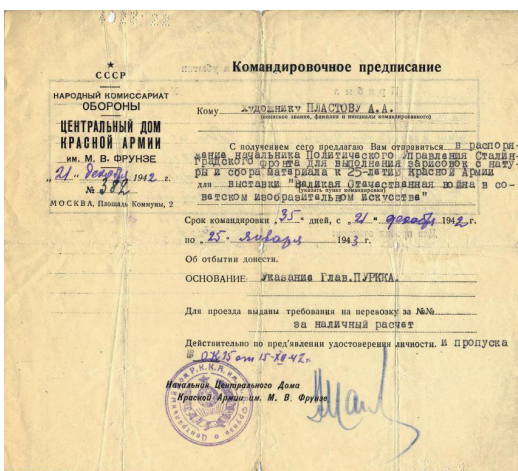 СССР
НАРОДНЫЙ КОМИССАРИАТ
ОБОРОНЫ
ЦЕНТРАЛЬНЫЙ ДОМ
КРАСНОЙ АРМИИ
им. М. В. ФРУНЗЕ
"21" декабря 1942 г.
№ 382
МОСКВА, Площадь Коммуны, 2
Командировочное предписание
Кому художнику ПЛАСТОВУ А.А.
(воинское звание, фамилия и инициалы командированного)
С получением сего предлагаю Вам отправиться в распоря-
жение начальника Политического Управления Сталин-
градского фронта для выполнения зарисовок с нату-
ры и сбора материала к 25-летию Красной Армии
для выставки "Великая Отечественная война в со-
(указать пункт командировки)
ветском изобразительном искусстве"
Срок командировки "35" дней, с "21" декабря 1942 г.
по "25" января 1943 г.
Об отбытии донести.
ОСНОВАНИЕ: Указание Глав.ПУРККА.
Для проезда выданы требования на перевозку за №№
за наличный расчет
Действительно по пред'явлении удостоверения личности. и пропуска
№ 0435 от 15-XII 42 г.
Начальник Центрального Дома
Красной Армии им. М. В. Фрунзе